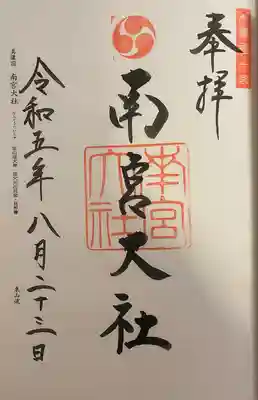 奉拝
南宮大社
南宮大社
令和五年八月二十三日
美濃国 南宮大社
東山道